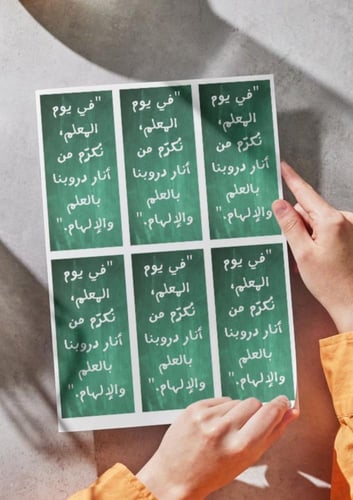 "في يوم
المعلم،
نُكرّم من
أنار دروبنا
بالعلم
والإلهام."
"في يوم
المعلم،
نُكرّم من
أنار دروبنا
بالعلم
والإلهام."
"في يوم
المعلم،
نُكرّم من
أنار دروبنا
بالعلم
والإلهام."
"في يوم
المعلم،
نُكرّم من
أنار دروبنا
بالعلم
والإلهام."
"في يوم
المعلم،
نُكرّم من
أنار دروبنا
بالعلم
والإلهام."
"في يوم
المعلم،
نُكرّم من
أنار دروبنا
بالعلم
والإلهام."